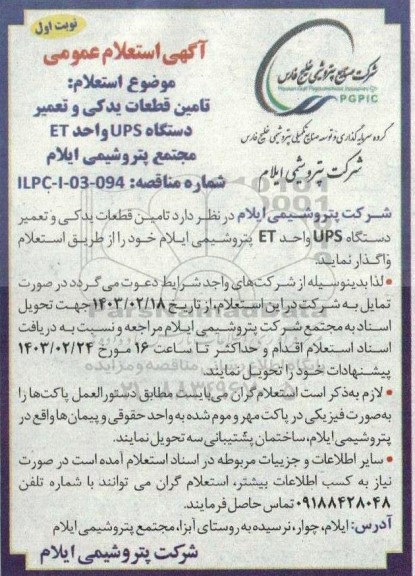 نوبت اول
شرکت صنایع پتروشیمی خلیج فارس
PGPIC
گروه سرمایه گذاری و توسعه صنایع تکمیلی پتروشیمی خلیج فارس
شرکت پتروشیمی ایلام
آگهی استعلام عمومی
موضوع استعلام:
تامین قطعات یدکی و تعمیر
دستگاه UPS واحد ET
مجتمع پتروشیمی ایلام
شماره مناقصه: ILPC-I-03-094
شرکت پتروشیمی ایلام در نظر دارد تامین قطعات یدکی و تعمیر
دستگاه UPS واحد ET پتروشیمی ایلام خود را از طریق استعلام
واگذار نماید.
• لذا بدینوسیله از شرکت‌های واجد شرایط دعوت می گردد در صورت
تمایل به شرکت در این استعلام، از تاریخ ۱۴۰۳/۰۲/۱۸ جهت تحویل
اسناد به مجتمع شرکت پتروشیمی ایلام مراجعه و نسبت به دریافت
اسناد استعلام اقدام و حداکثر تا ساعت ۱۶ مورخ ۱۴۰۳/۰۲/۲۴
پیشنهادات خود را تحویل نمایند.
• لازم به ذکر است استعلام گران می‌بایست مطابق دستورالعمل پاکت‌ها را
به‌صورت فیزیکی در پاکت مهر و موم شده به واحد حقوقی و پیمان ها واقع در
پتروشیمی ایلام، ساختمان پشتیبانی سه تحویل نمایند.
• سایر اطلاعات و جزییات مربوطه در اسناد استعلام آمده است در صورت
نیاز به کسب اطلاعات بیشتر، استعلام گران می توانند با شماره تلفن
۰۹۱۸۸۴۲۸۰۴۸ تماس حاصل فرمایند.
آدرس: ایلام، چوار، نرسیده به روستای آبزا، مجتمع پتروشیمی ایلام
شرکت پتروشیمی ایلام